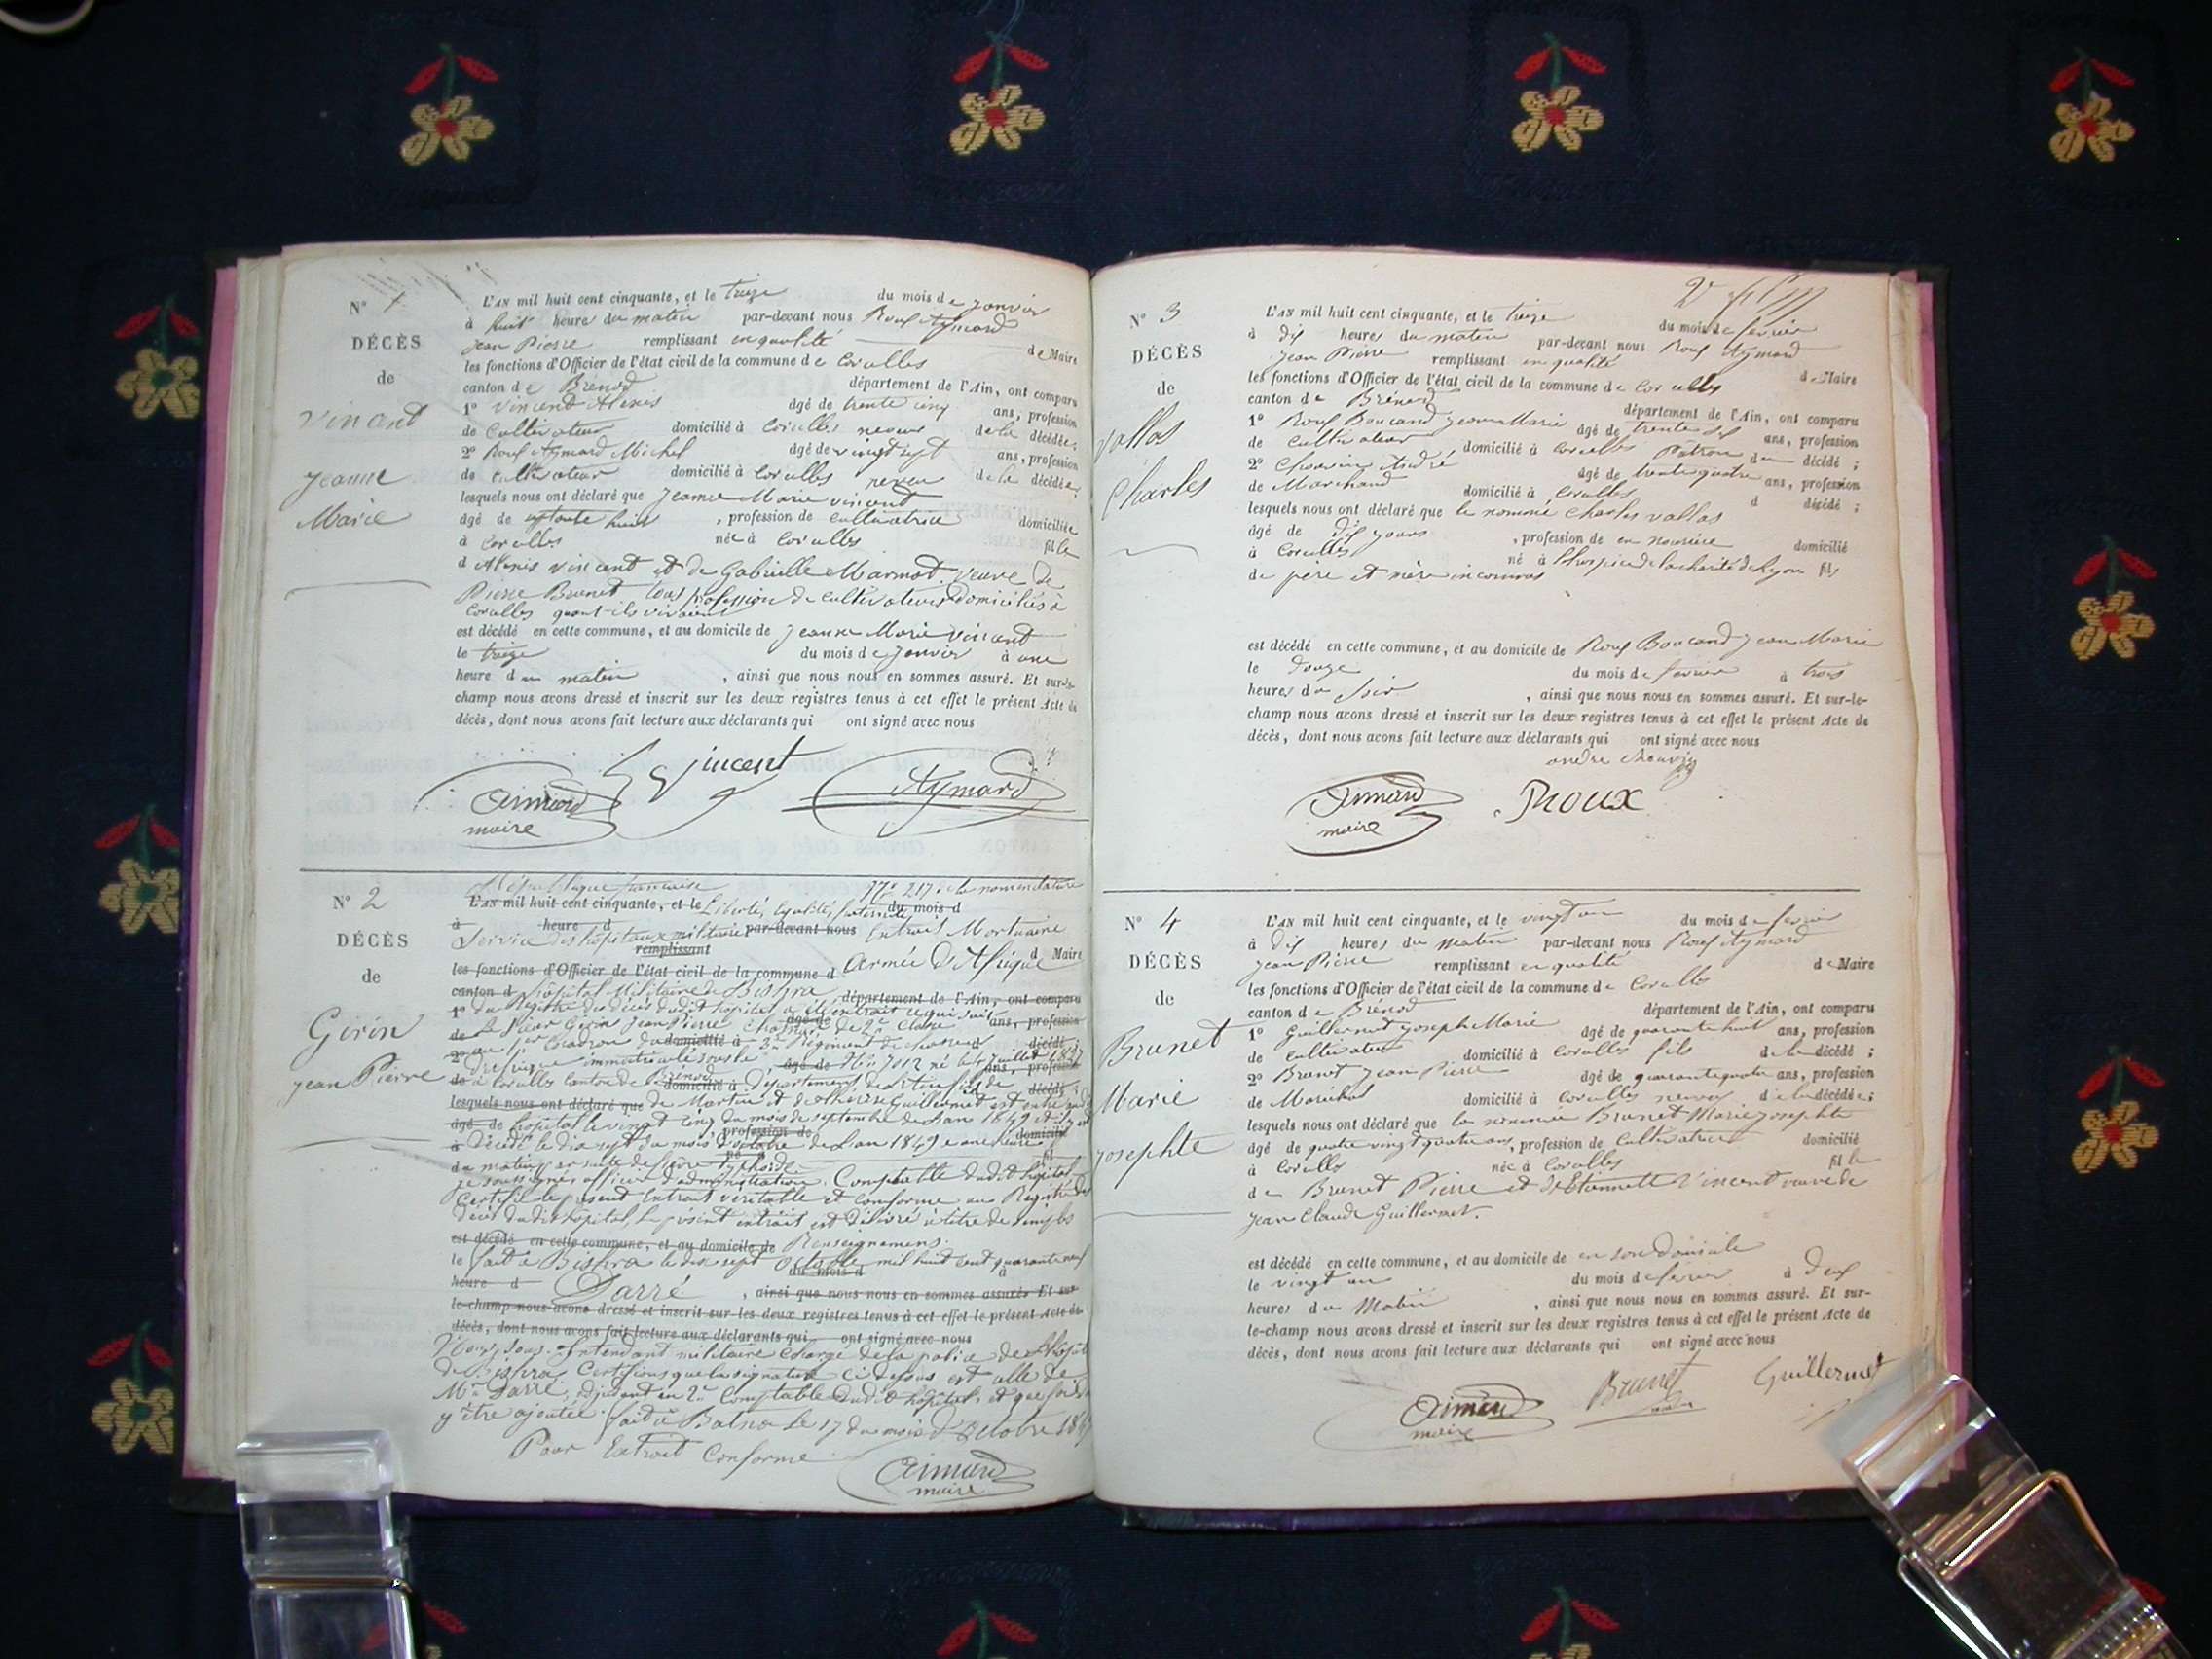 N° 1
DÉCÈS
de
Vincent
Jeanne
Marie
L'AN mil huit cent cinquante, et le treize du mois de janvier
à huit heures du matin par-devant nous Roux Aymard
Jean Pierre remplissant en qualité de Maire
les fonctions d'Officier de l'état civil de la commune de Corcelles
canton de Brénod département de l'Ain, ont comparu
1° Vincent Alexis âgé de trente cinq ans, profession
de Cultivateur domicilié à Corcelles neveu de la décédée;
2° Roux Aymard Michel âgé de vingt sept ans, profession
de cultivateur domicilié à Corcelles neveu de la décédée;
lesquels nous ont déclaré que Jeanne Marie Vincent
âgé de huit , profession de cultivatrice domiciliée
à Corcelles née à Corcelles fille
d'Alexis Vincent et de Gabrielle Marmot. Veuve de
Pierre Brunet tous profession de cultivateurs domiciliés à
Corcelles quant-ils vivaient
est décédé en cette commune, et au domicile de Jeanne Marie Vincent
le treize du mois de janvier à une
heure du matin , ainsi que nous nous en sommes assuré. Et sur-le-
champ nous avons dressé et inscrit sur les deux registres tenus à cet effet le présent Acte de
décès, dont nous avons fait lecture aux déclarants qui ont signé avec nous
Aimard Vincent Aymard
maire
N° 2
DÉCÈS
de
Girin
Jean Pierre
République française N° 217 de la nomenclature
L'AN mil huit cent cinquante, et le Liberté, égalité, fraternité du mois d
à heure d
Service des hôpitaux militaires par-devant nous Extrait Mortuaire
remplissant d Maire
les fonctions d'Officier de l'état civil de la commune d Armée d'Afrique
canton d hôpital Militaire de Biskra , département de l'Ain, ont comparu
1° du Registre des décès dudit hôpital a été extrait ce qui suit âgé de ans, profession
de Le Sieur Girin Jean Pierre Chasseur de 2e Classe
2° au 1er Escadron du domicilié à 3e Régiment de chasseurs décédé;
d'afrique immatriculé sous le âgé de N° 7012 né le juillet 1827 ans, profession
de à Corcelles canton de Brénod domicilié à Département de l'Ain fils de décédé;
lesquels nous ont déclaré que de Martin et de Thérèse Guillermet est entré audit
âgé de hôpital le vingt cinq du mois de septembre de l'an 1849 et il y est profession de
à Décédé le dix sept du mois d'octobre de l'an 1849 à une heure domicilié
né à fil
du matin par suite de fièvre typhoïde.
Je soussigné, officier d'administration Comptable dudit hôpital
Certifie le présent Extrait véritable et conforme au Registre des
décès dudit hôpital, le présent extrait est délivré à titre de simples
est décédé en cette commune, et au domicile de Renseignemens.
le fait à Biskra le dix sept Octobre mil huit cent quarante neuf du mois d à
heure d Darré , ainsi que nous nous en sommes assurés Et sur
le-champ nous avons dressé et inscrit sur les deux registres tenus à cet effet le présent Acte de
décès, dont nous avons fait lecture aux déclarants qui ont signé avec nous
Nous, Sous-Intendant militaire Chargé de la police de l'hôpital
de Biskra Certifions que la signature Ci dessus est celle de
Mr Darré, adjudant en 2e Comptable dudit hôpital, et que foi doit
y être ajoutée. fait à Batna Le 17 du mois d'octobre 1849
Pour Extrait Conforme
Aimard
maire
N° 3
DÉCÈS
de
Vallos
Charles
2e
L'AN mil huit cent cinquante, et le treize du mois de février
à dix heures du matin par-devant nous Roux Aymard
Jean Pierre remplissant en qualité de Maire
les fonctions d'Officier de l'état civil de la commune de Corcelles
canton de Brénod département de l'Ain, ont comparu
1° Roux Boucand Jean Marie âgé de trente six ans, profession
de cultivateur domicilié à Corcelles Patron du décédé;
2° Chouvin André âgé de trente quatre ans, profession
de Marchand domicilié à Corcelles d décédé;
lesquels nous ont déclaré que le nommé Charles Vallos
âgé de dix jours , profession de en nourrice domicilié
à Corcelles né à l'hospice de la charité de Lyon fils
de père et mère inconnus
est décédé en cette commune, et au domicile de Roux Boucand Jean Marie
le douze du mois de février à trois
heures du soir , ainsi que nous nous en sommes assuré. Et sur-le-
champ nous avons dressé et inscrit sur les deux registres tenus à cet effet le présent Acte de
décès, dont nous avons fait lecture aux déclarants qui ont signé avec nous
andre chouvin
Aimard Roux
maire
N° 4
DÉCÈS
de
Brunet
Marie
Josephte
L'AN mil huit cent cinquante, et le vingt un du mois de février
à dix heures du matin par-devant nous Roux Aymard
Jean Pierre remplissant en qualité de Maire
les fonctions d'Officier de l'état civil de la commune de Corcelles
canton de Brénod département de l'Ain, ont comparu
1° Guillermet Joseph Marie âgé de quarante huit ans, profession
de cultivateur domicilié à Corcelles fils de la décédé;
2° Brunet Jean Pierre âgé de quarante quatre ans, profession
de Maréchal domicilié à Corcelles neveu de la décédée;
lesquels nous ont déclaré que la nommée Brunet Marie Josephte
âgé de quatre vingt quatre ans, profession de Cultivatrice domicilié
à Corcelles née à Corcelles fille
de Brunet Pierre et d'Etiennette Vincent veuve de
Jean Claude Guillermet.
est décédé en cette commune, et au domicile de en son domicile
le vingt un du mois de février à deux
heures du Matin , ainsi que nous nous en sommes assuré. Et sur-
le-champ nous avons dressé et inscrit sur les deux registres tenus à cet effet le présent Acte de
décès, dont nous avons fait lecture aux déclarants qui ont signé avec nous
Aimard Brunet Guillermet
maire